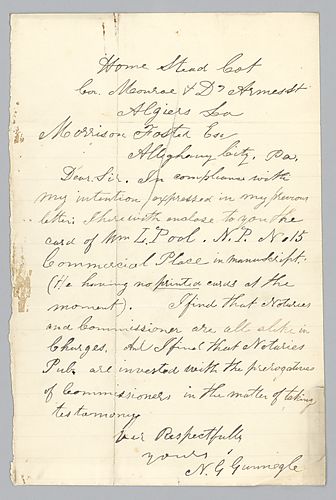 Home Stead Cot
Cor. Monroe & De Armes St
Algiers La
Morrison Foster Esq
Alleghany City, Pa,
Dear Sir. In compliance with
my intention expressed in my previous
letter. I herewith enclose to you the
card of Wm L. Pool. N.P. No 15
Commercial Place in manuscript.
(He having no printed cards at the
moment). I find that Notaries
and Commissioner are all alike in
Charges. And I find that Notaries
Pub. are invested with the prerogatives
of Commissioners in the matter of taking
testamony
Respectfully
yours
N. G. Gunnegle